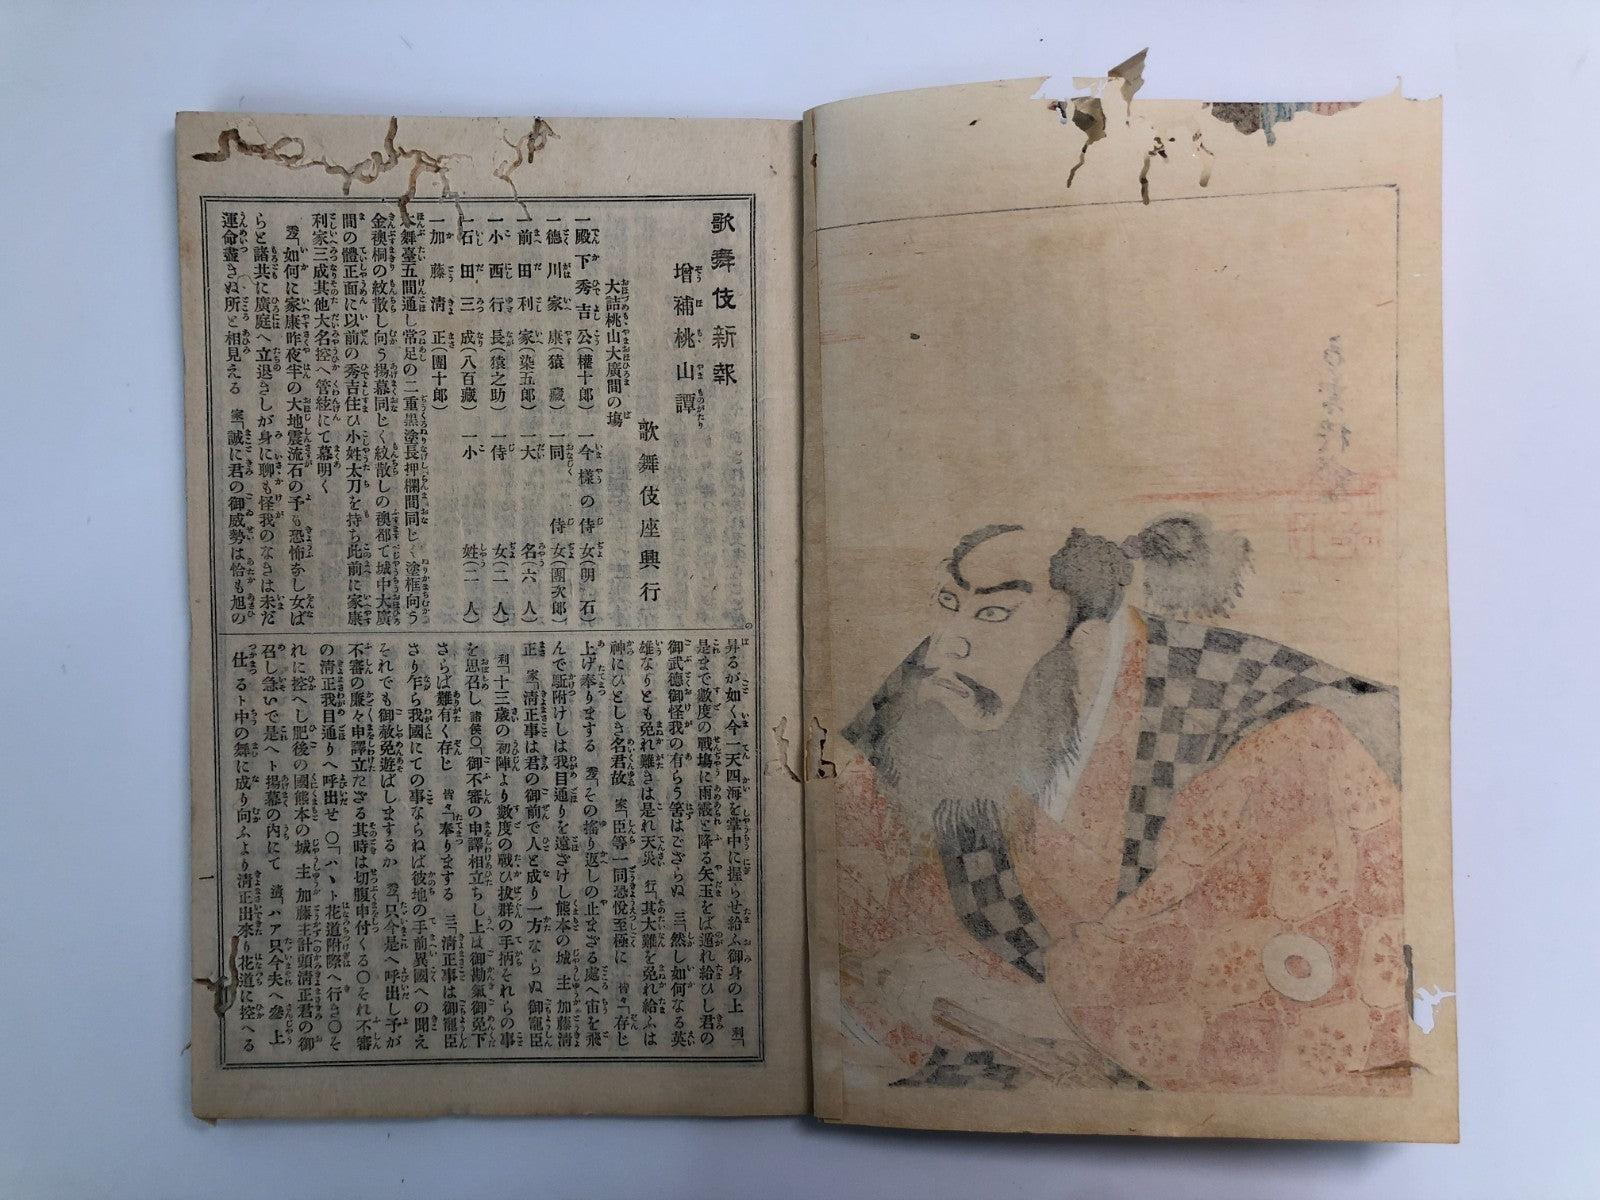 歌舞伎新報
増補桃山譚
歌舞伎座興行
大詰桃山大廣間の塲
一殿下秀吉公(權十郎)
一德川家康(猿藏)
一前田利家(染五郎)
一小西行長(猿之助)
一石田三成(八百藏)
一加藤淸正(團十郎)
一今樣の侍女(明石)
一同侍女(團次郎)
一大名(六人)
一侍女(二人)
一小姓(二人)
本舞臺五間通し常足の二重黒塗長押欄間同じく塗框向う
金襖桐の紋散し向う揚幕同じく紋散しの襖都て城中大廣
間の體正面に以前の秀吉住ひ小姓太刀を持ち此前に家康
利家三成其他大名控へ管絃にて幕明く
秀「如何に家康昨夜半の大地震流石の予も恐怖なし女ば
らと諸共に廣庭へ立退きしが身に聊も怪我のなきは未だ
運命盡きぬ所と相見える 家「誠に君の御威勢は恰も旭の
昇るが如く今一天四海を掌中に握らせ給ふ御身の上 利「
是まで數度の戰塲に雨霰と降る矢玉をば遁れ給ひし君の
御武德御怪我の有らう筈はござらぬ 三「然し如何なる英
雄なりとも免れ難きは是れ天災 行「其大難を免れ給ふは
神にひとしき名君故 家「臣等一同恐悅至極に 皆々「存じ
上げ奉りまする 秀「その搖り返しの止まざる處へ宙を飛
んで駈附けしは我目通りを遠ざけし熊本の城主加藤淸
正 家「淸正事は君の御前で人と成り一方ならぬ御寵臣
利「十三歲の初陣より數度の戰ひ拔群の手柄それらの事
を思召し 諸侯〇「御不審の申譯相立ちし上は御勘氣御免下
さらば難有く存じ 皆々「奉りまする 三「淸正事は御寵臣
さり乍ら我國にての事ならねば彼地の手前異國への聞え
それでも御赦免遊ばしまするか 秀「只今是へ呼出し予が
不審の廉々申譯立たざる其時は切腹申付くる〇それ不審
の淸正我目通りへ呼出せ 〇「ハヽト花道附際へ行き〇そ
れに控へし肥後の國熊本の城主加藤主計頭淸正君の御
召し急いで是へト揚幕の内にて 淸「ハア只今夫へ參上
仕るト中の舞に成り向ふより淸正出來り花道に控へる